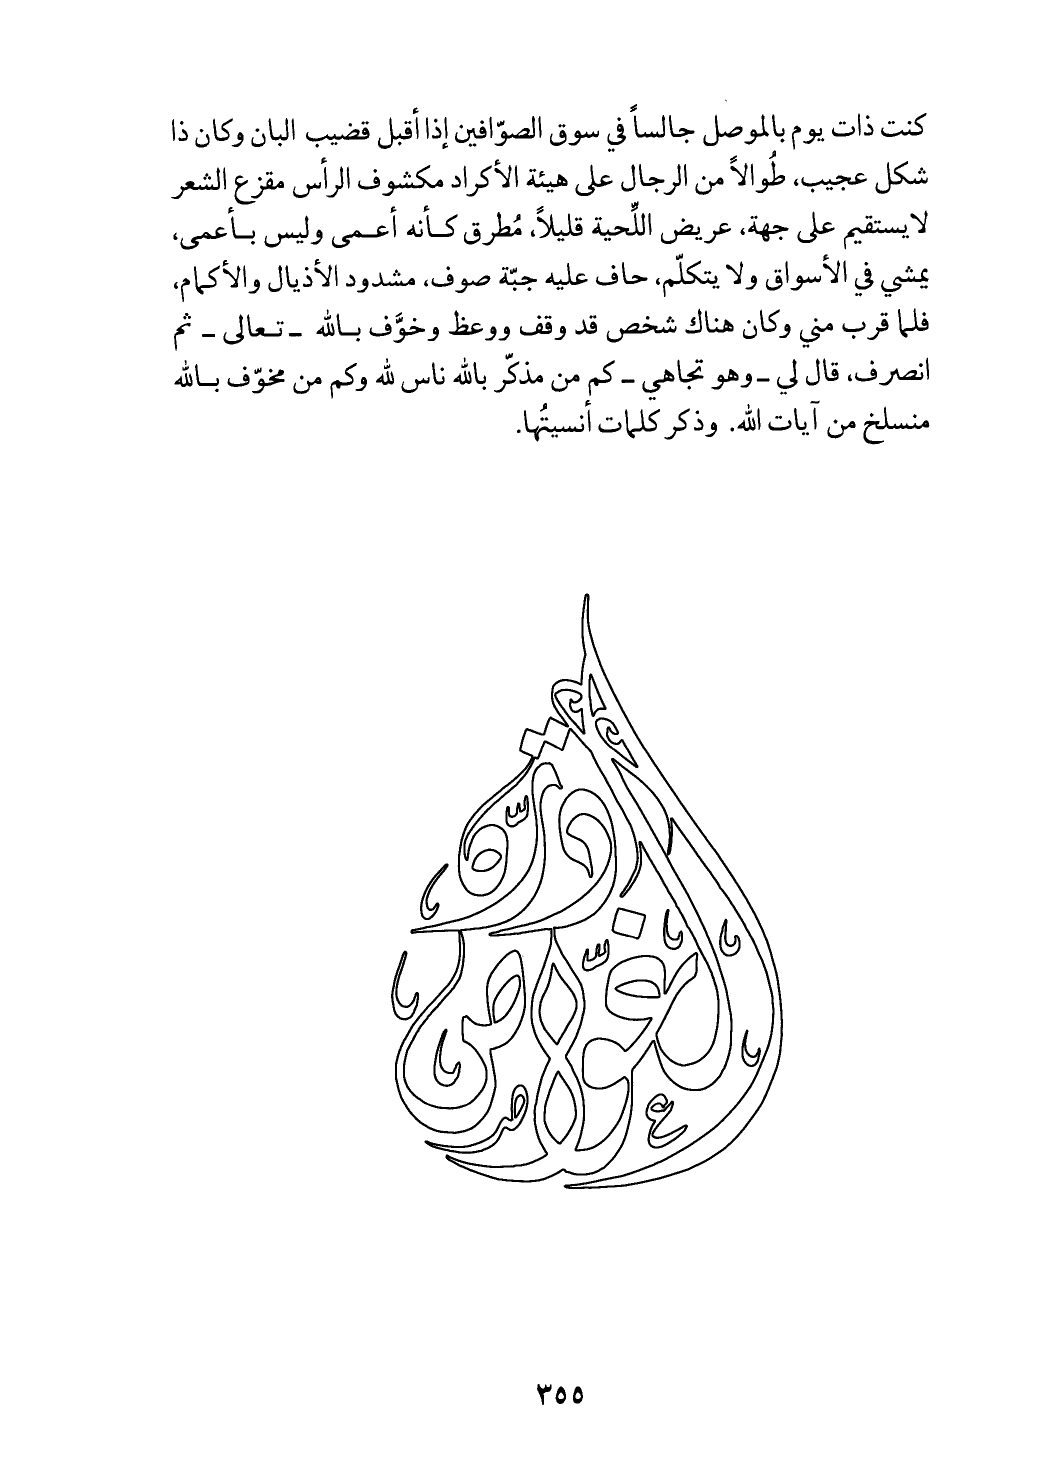 كنت ذات يوم بالموصل جالساً في سوق الصوّافين إذا أقبل قضيب البان وكان ذا
شكل عجيب، طُوالاً من الرجال على هيئة الأكراد مكشوف الرأس مقزع الشعر
لا يستقيم على جهة، عريض اللِّحية قليلاً، مُطرق كـأنه أعـمى وليس بـأعمى،
يمشي في الأسواق ولا يتكلّم، حاف عليه جبّة صوف، مشدود الأذيال والأكمام،
فلما قرب مني وكان هناك شخص قد وقف ووعظ وخوَّف بـالله ـ تـعالى ـ ثم
انصرف، قال لي ـ وهو تجاهي ـ كم من مذكّر بالله ناس لله وكم من مخوّف بـالله
منسلخ من آيات الله. وذكر كلمات أنسيتُها.
درّة
الغوّاص
٣٥٥